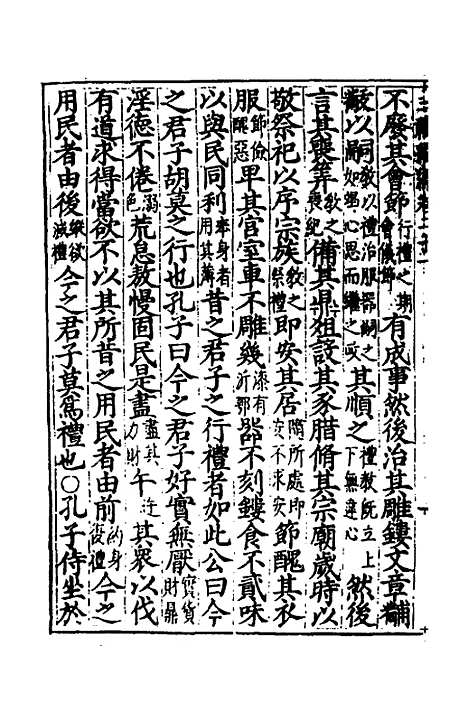 不廢其會節行禮之期會儀節有成事然後治其雕鏤文章黼
黻以嗣教以禮治服器嗣之心思而繼之其順之禮教既立上下無違心然後
言其喪筭教之喪紀備其鼎俎設其豕腊脩其宗廟歲時以
敬祭祀以序宗族教之祭禮即安其居隨所處即安不求安節醜其衣
服節儉醜惡卑其宮室車不雕幾漆有沂鄂器不刻鏤食不貳味
以與民同利率身者用其薄昔之君子之行禮者如此公曰今
之君子胡莫之行也孔子曰今之君子好實無厭實貨財
淫德不倦溺色荒怠敖慢固民是盡盡其力財午迕其衆以伐
有道求得當欲不以其所昔之用民者由前身復禮今之
用民者由後縱欲滅禮今之君子莫爲禮也○孔子侍坐於